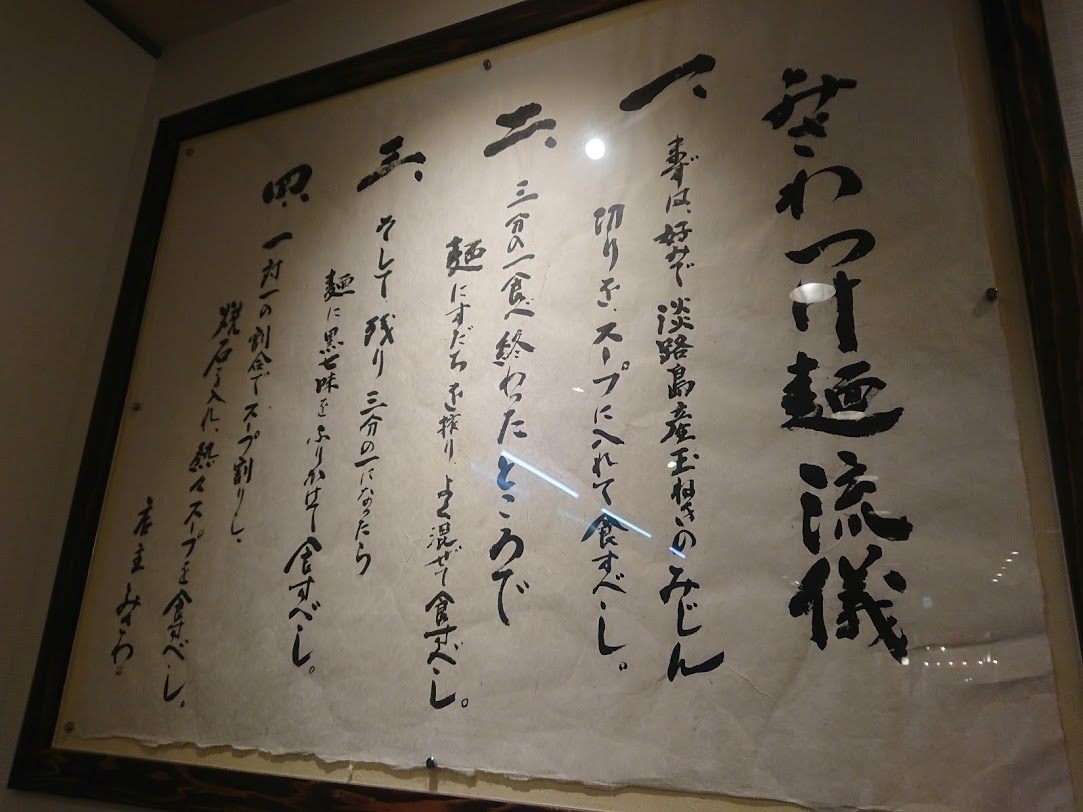 みさわつけ麺流儀
一、まずは、好みで淡路島産玉ねぎのみじん
切りを、スープに入れて食すべし。
二、三分の一食べ終わったところで
麺にすだちを搾り、よく混ぜて食すべし。
三、そして残り三分の一になったら
麺に黒七味をふりかけて食すべし。
四、一対一の割合でスープ割りし、
焼石を入れ、熱々スープを食すべし。
店主 みさわ。